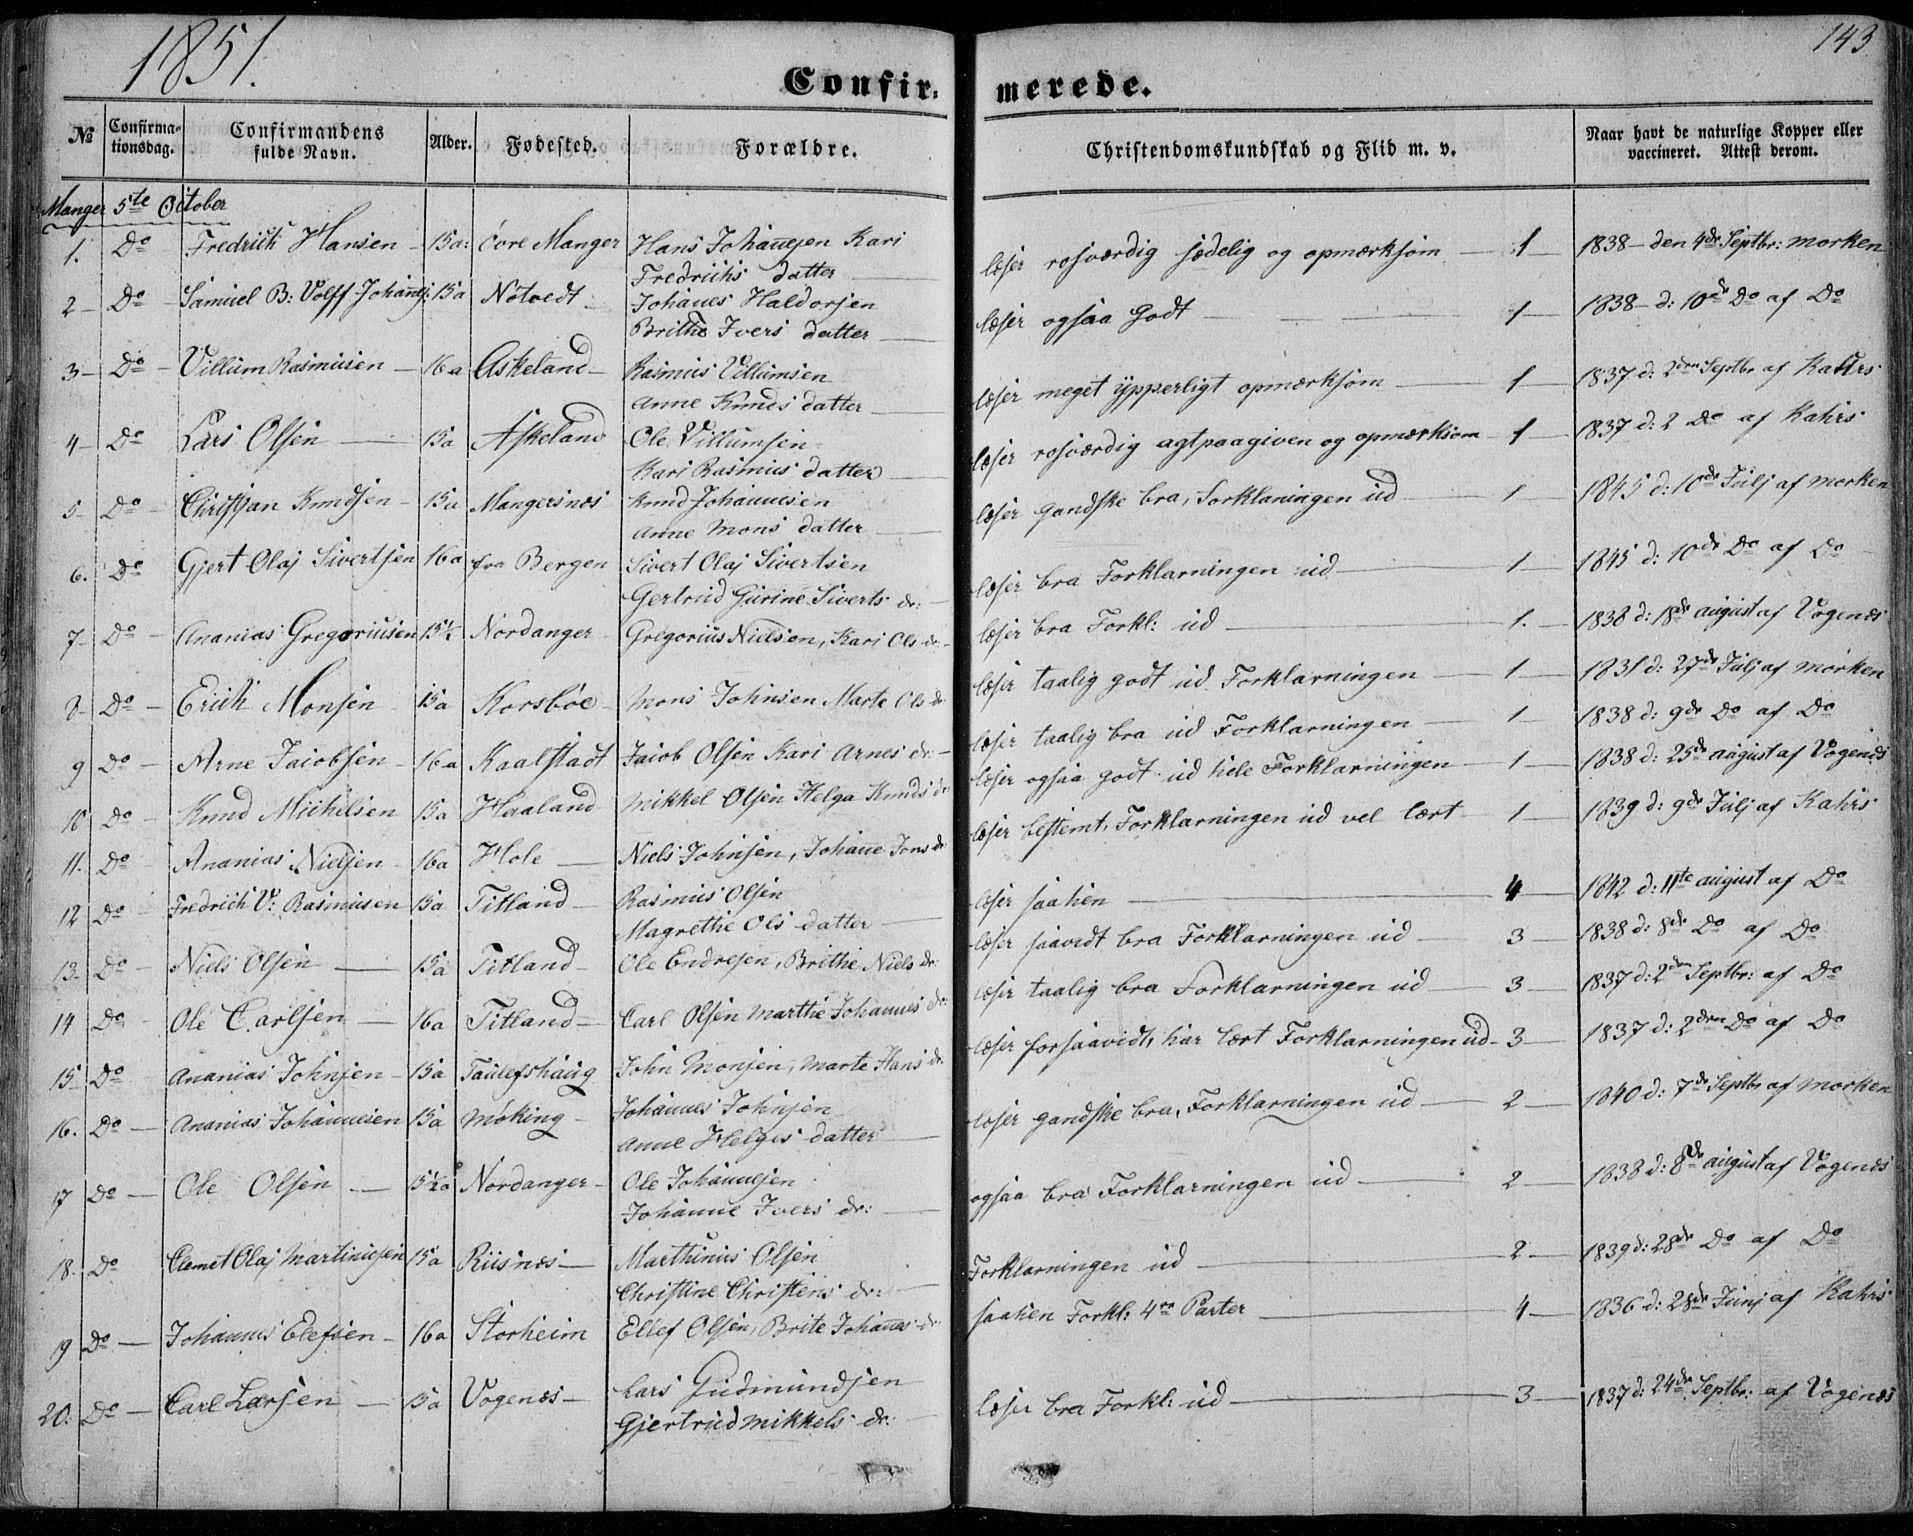 1851.
143
Confir-merede.
№ | Confirmationsdag. | Confirmandens fulde Navn. | Alder. | Fødested. | Forældre. | Christendomskundskab og Flid m. v. | Naar havt de naturlige Kopper eller vaccineret. Attest derom.
Manger 5te October
1. Do Fredrich Hansen 15a: Manger Hans Johannesen Kari Fredrichs datter læser rosværdig sædelig og opmærksom 1 1838 den 4de Septbr: Morken
2 Do Samuel B: Volff Johannes: 15a Notvedt Johanes Haldorsen Brithe Ivers datter læser ogsaa godt 1 1838 d: 10de Do af Do
3 Do Villum Rasmusen 16a Askeland Rasmus Villumsen Anne Knuds datter læser meget ypperligt opmærksom 1 1837 d: 2den Septbr af Kahrs
4 Do Lars Olsen 15a Askeland Ole Villumsen Kari Rasmus datter læser rosværdig agtpaagiven og opmærksom 1 1837 d: 2 Do af Kahrs
5 Do Christjan Knudsen 15a Mangersnæs Knud Johannesen Anne Mons datter læser gandske bra, Forklaningen ud 1 1845 d: 10de Julj af Morken
6. Do Gjert Olaj Sivertsen 16a fra Bergen Sivert Olaj Sivertsen Gertrud Gurine Siverts dr: læser bra Forklarningen ud 1 1845 d: 10de Do af Do
7 Do Ananias Gregoriusen 15½ Nordanger Gregorius Nielsen, Kari Ols dr læser bra Forkl: ud 1. 1838 d: 18de august af Vogenæs
8 Do Erich Monsen 15a Korsbøe Mons Johnsen Marte Ols dr læser taalig godt ud Forklarningen 1 1831 d: 27de Julj af Morken
9 Do Arne Jacobsen 16a Kaalstadt Jacob Olsen Kari Arnes dr læser taalig bra ud Forklarningen 1 1838 d: 9de Do af Do
10 Do Knud Michelsen 15a Haaland Mikkel Olsen Helga Knuds dr læser ogsaa godt ud hele Forklarningen 1 1838 d: 25de august af Vogenæs
11. Do Ananias Nielsen 16a Hole Niels Johnsen, Johane Jons dr læser bestemt, Forklarningen ud vel lært 1 1839 d: 9de Julj af Kahrs
12 Do Fredrich V: Rasmusen 15a Titland Rasmus Olsen Magrethe Ols datter læser saahen 4 1842 d: 11te august af Do
13. Do Niels Olsen 15a Titland Ole Endresen, Brithe Niels dr: læser saavidt bra Forklarningen ud 3 1838 d: 8de Do af Do
14 Do Ole Carlsen 16a Titland Carl Olsen Marthe Johannes dr: læser taalig bra Forklarningen ud 3 1837 d: 2den Septbr: af Do
15 Do Ananias Johnsen 15a Toulefshaug John Monsen, Marte Hans dr læser forsaavidt, har lært Forklarningen ud 3 1837 d: 2den Do af Do
16. Do Ananias Johannesen 15a Møking Johannes Johnsen Anne Helges datter læser gandske bra, Forklarningen ud 2 1840 d: 7de Septbr af Morken
17 Do Ole Olsen 15½a Nordanger Ole Johannesen Johanne Ivers dr: ogsaa bra Forklarningen ud 2 1838 d: 8de august af Vogenæs
18. Do Clemet Olaj Martinusen 15a Riisnæs Marthinus Olsen Christine Christens dr: Forklarningen ud 2 1839 d: 28de Do af Do
19 Do Johannes Elefsen 16a Storheim Ellef Olsen, Brite Johanes dr saahen Forkl: 4re Parter 4 1836 d: 28de Junj af Kahrs
20. Do Carl Larsen 15a Vogenæs Lars Gudmundsen Gjertrud Mikkels dr: læser bra Forkl: ud 3 1837 d: 24de Septbr: af Vogenæs